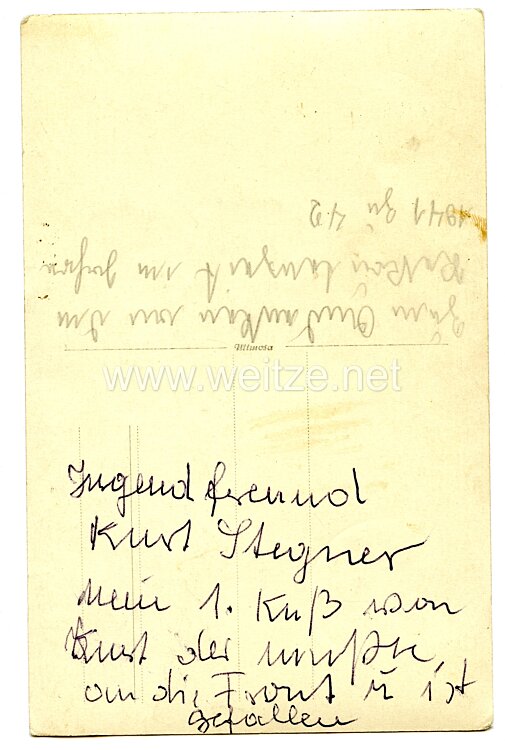 Zum Andenken
im Jahre
1941 zu 42
Mimosa
www.weitze.net
Jugendfreund
Kurt Stegner
Mein 1. Kuß von
Kurt der mußte
an die Front u ist
gefallen